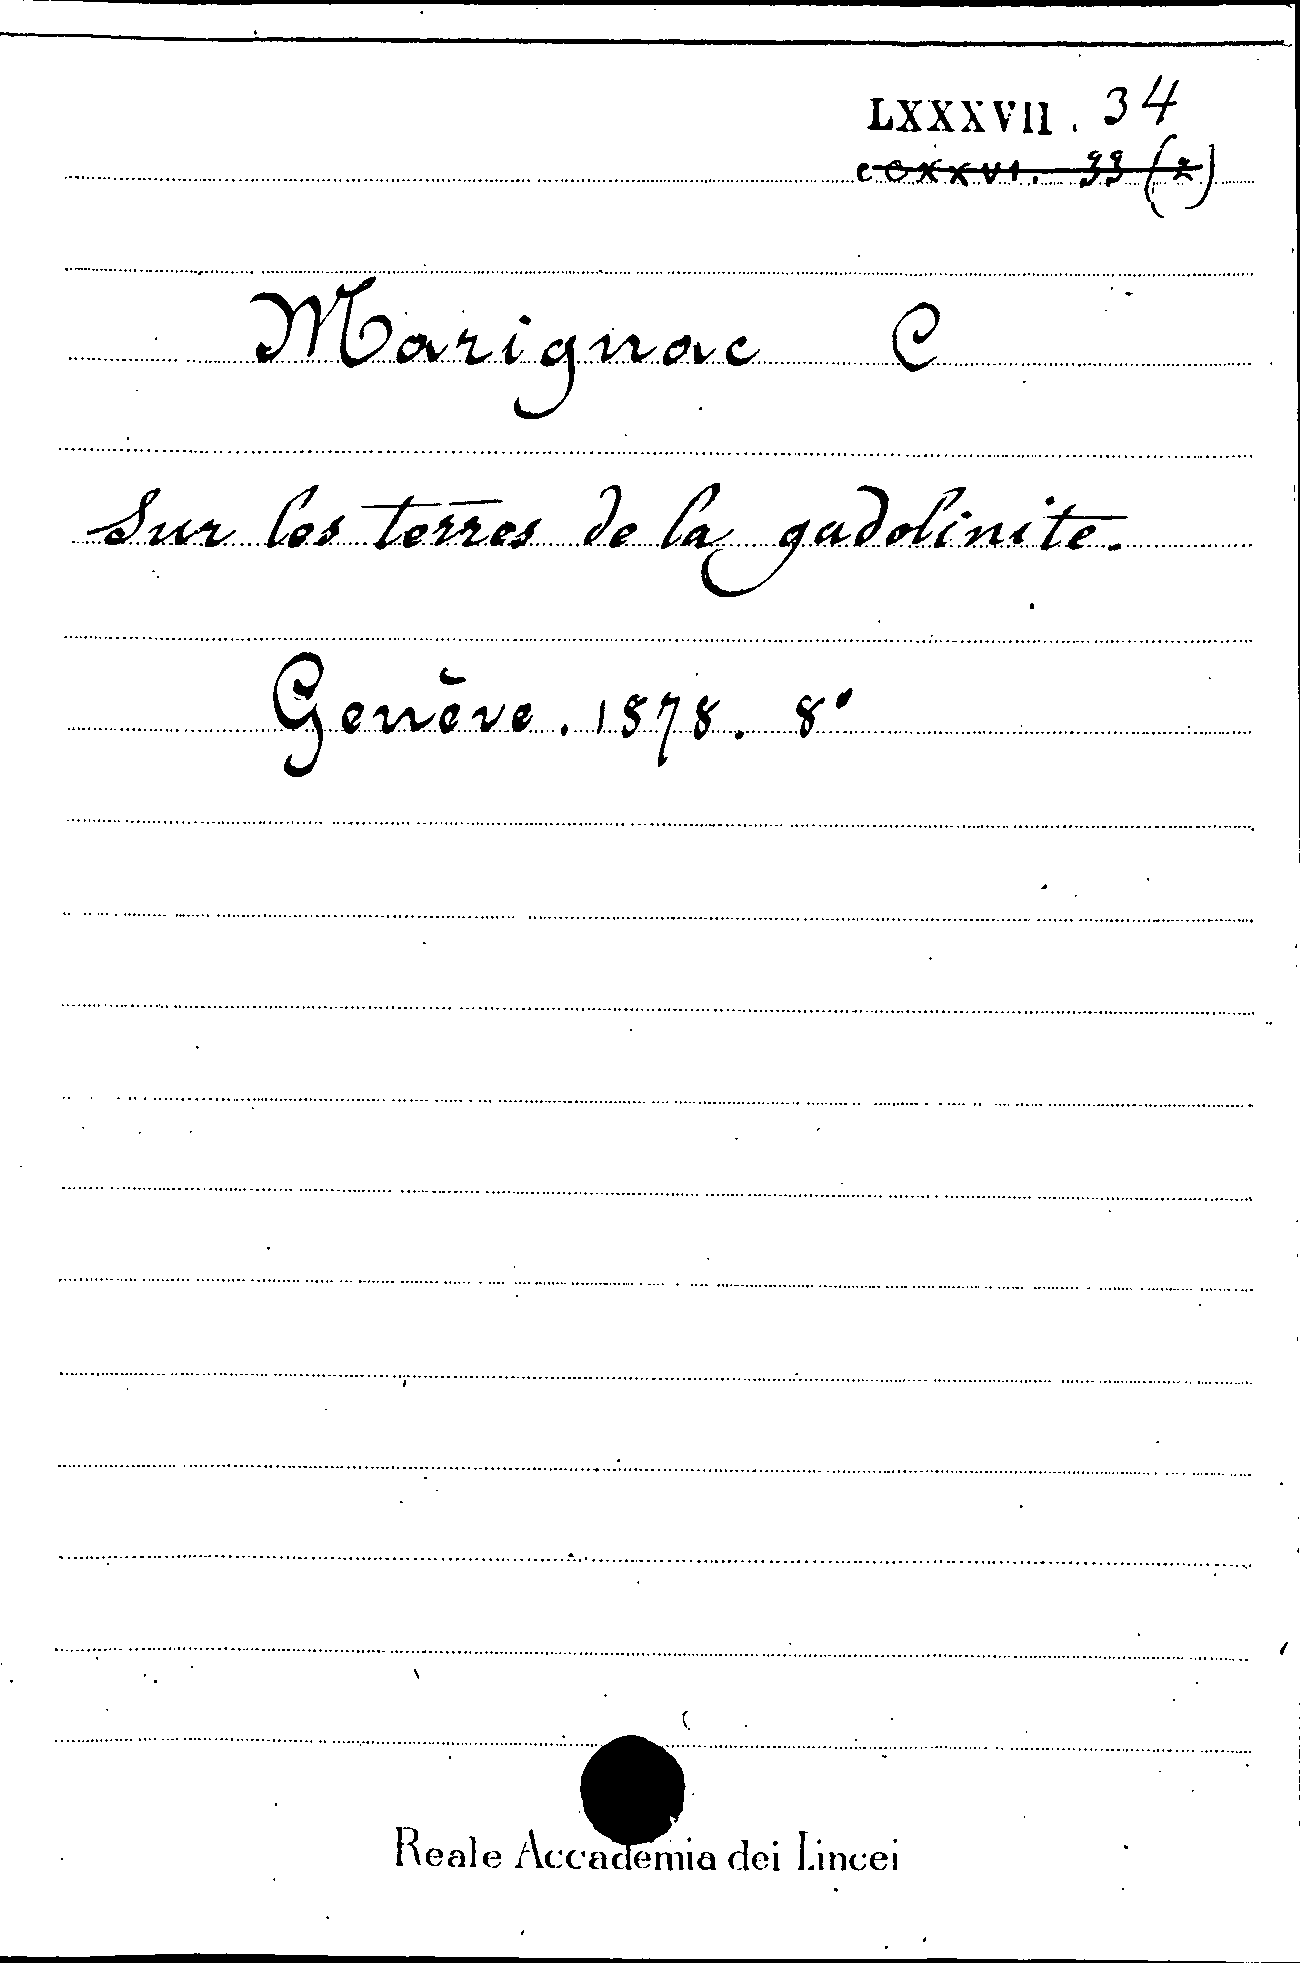 LXXXVII. 34
CCXXVI. 33 (2)
Marignac C
Sur les terres de la gadolinite.
Genève. 1878. 8°
Reale Accademia dei Lincei